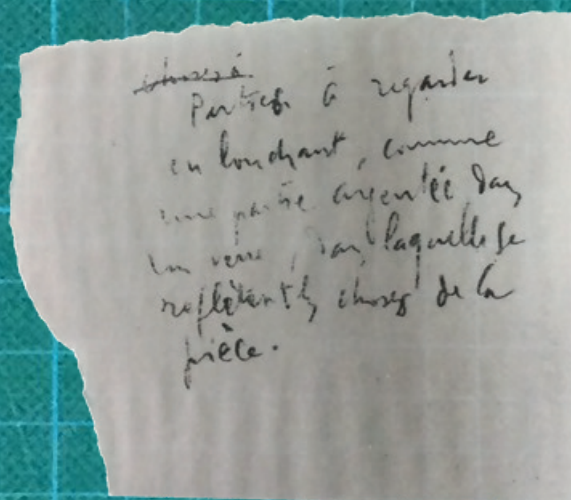 choses à
Parties à regarder
en louchant, comme
une partie argentée dans
un verre, dans laquelle se
reflètent les choses de la
pièce.